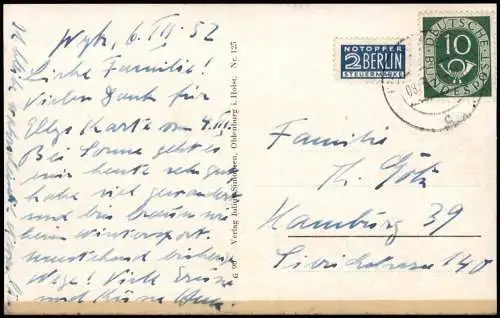 Wyk, 6. III. 52
Liebe Familie!
Vielen Dank für
Ellys Karte vom 4. III.
Bei Sonne geht es
mir heute sehr gut
habe viel gewandert
und bin braun wie
beim Wintersport.
Wege! Viele Grüsse
und Küsse
G 99 Verlag Julius Simonsen, Oldenburg i. Holst. Nr. 125
NOTOPFER
2 BERLIN
STEUERMARKE
DEUTSCHE BUNDESPOST
10
Familie
Th. Götz
Hamburg 39
Sierichstrasse 140